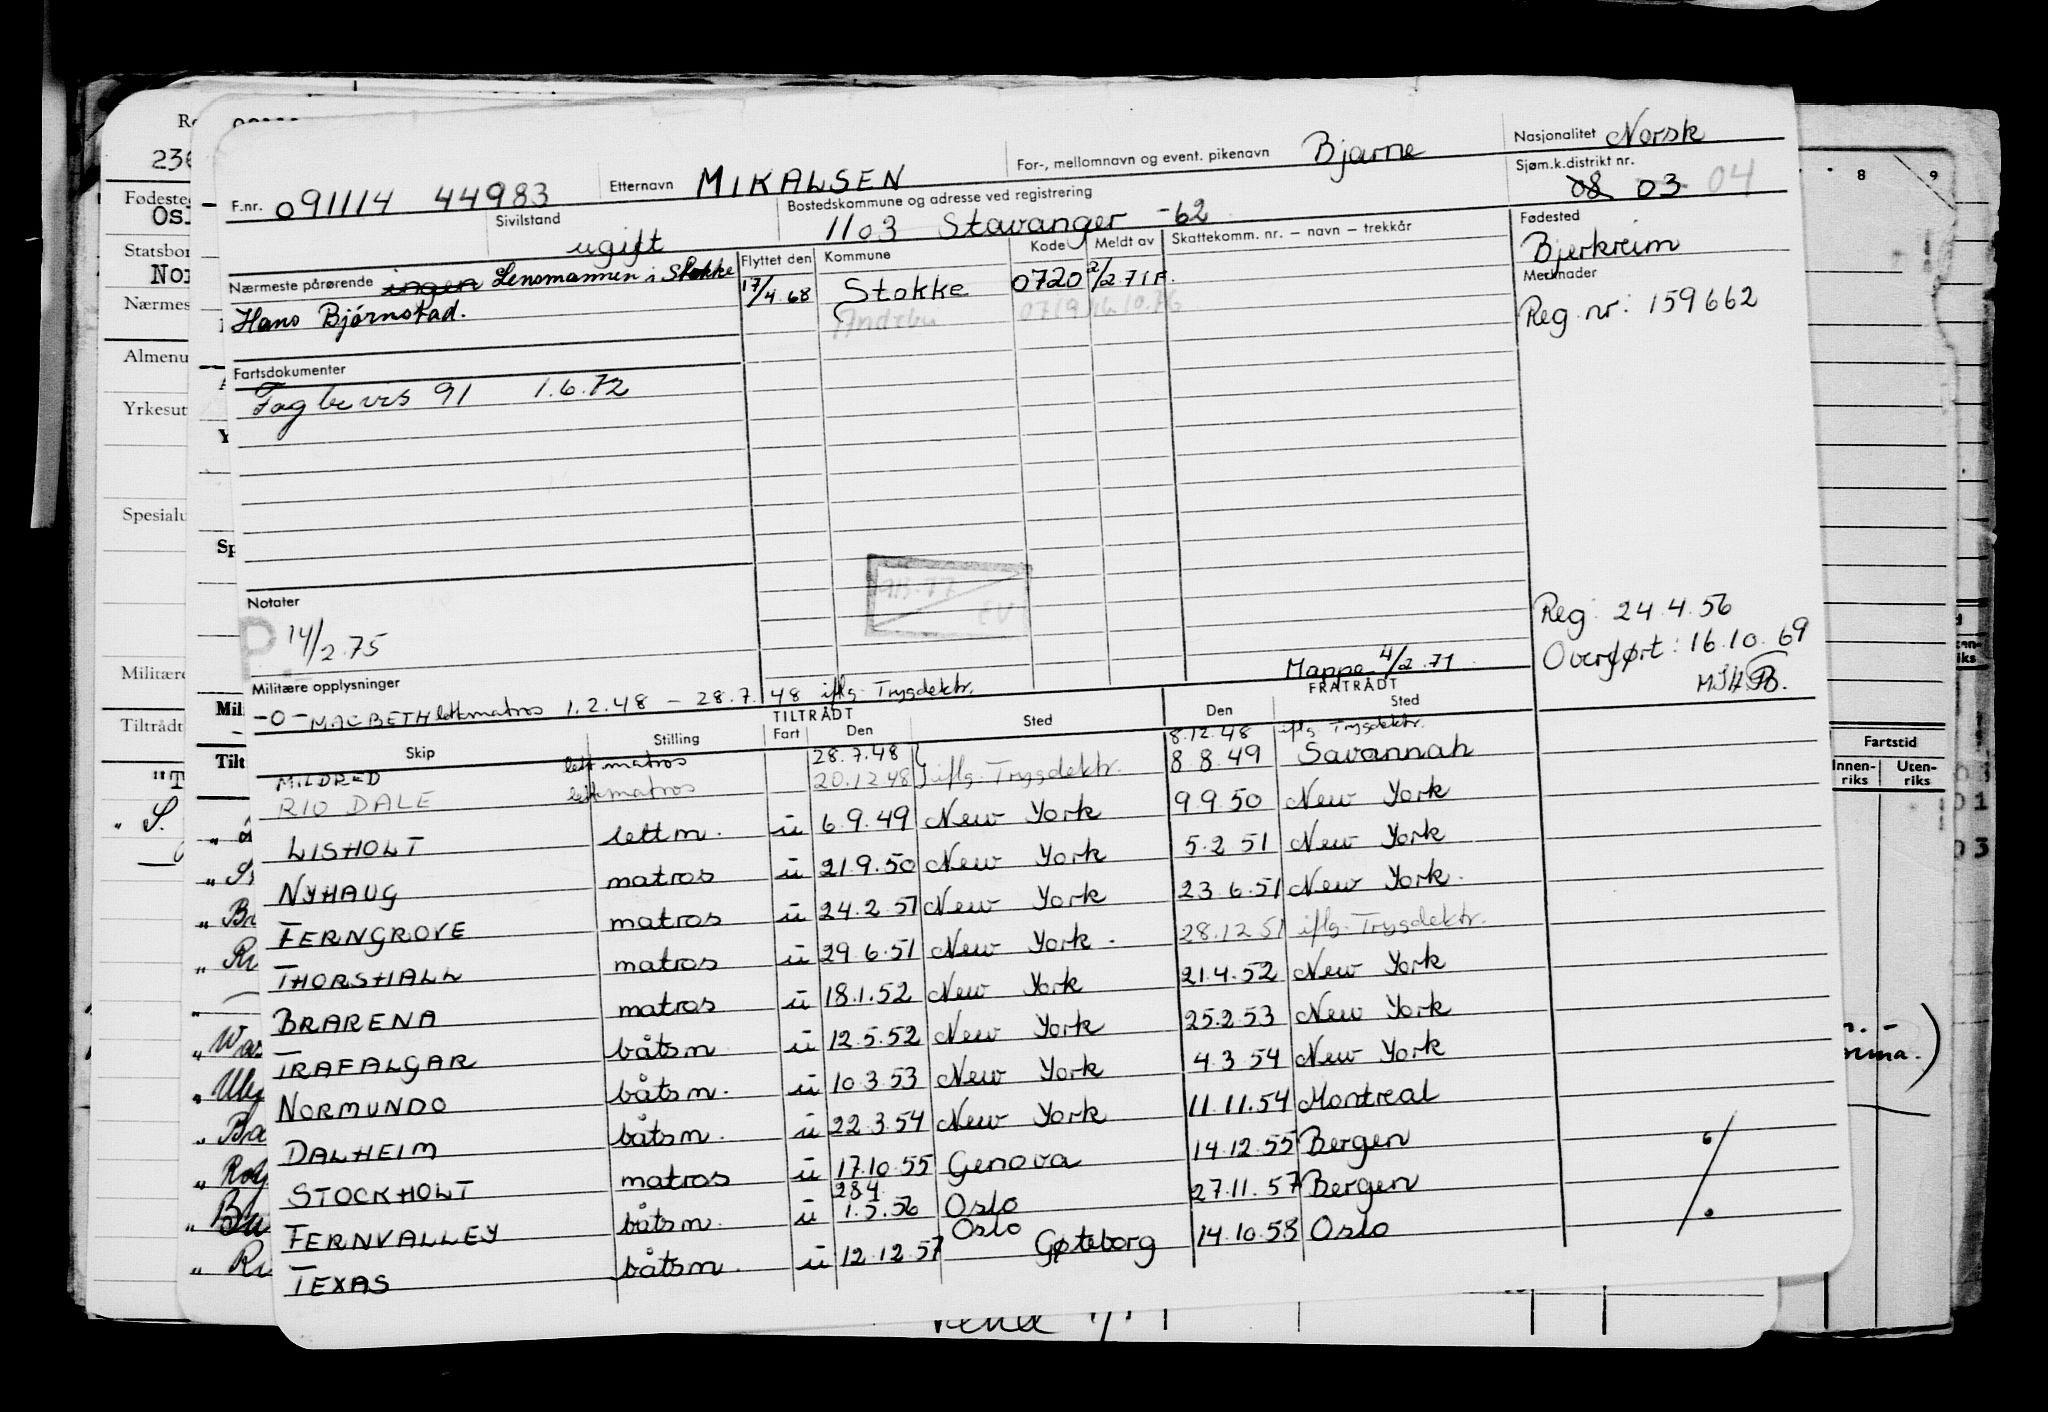 F.nr. 091114 44983 Etternavn MIKALSEN For-, mellomnavn og event. pikenavn Bjarne Nasjonalitet Norsk
Sivilstand ugift Bostedskommune og adresse ved registrering 1103 Stavanger -62 Sjøm.k.distrikt nr. 08 03 04
Nærmeste pårørende ingen Lensmannen i Stokke
Hans Bjørnstad.
Flyttet den Kommune Kode Meldt av Skattekomm. nr. – navn – trekkår
17/4.68 Stokke 0720 2/2.71 F.
Andebu 0719
Fødested
Bjerkreim
Merknader
Reg. nr: 159662
Fartsdokumenter
Fagbevis 91 1.6.72
Notater
P. 14/2.75
Reg: 24.4.56
Overført: 16.10.69
Mappe 4/2.71
Militære opplysninger
-O- MACBETH lettmatros 1.2.48 - 28.7.48 iflg. Trygdektr.
TILTRÅDT FRATRÅDT
Skip Stilling Fart Den Sted Den Sted
MILDRED lett matros 28.7.48 } iflg. Trygdektr. 8.12.48 iflg. Trygdektr.
RIO DALE lettmatros 20.12.48 8.8.49 Savannah
LISHOLT lettm. u 6.9.49 New York 9.9.50 New York
NYHAUG matros u 21.9.50 New York 5.2.51 New York
FERNGROVE matros u 24.2.51 New York 23.6.51 New York.
THORSHALL matros u 29.6.51 New York. 28.12.51 iflg. Trygdektr.
BRARENA matros u 18.1.52 New York 21.4.52 New York
TRAFALGAR båtsm u 12.5.52 New York 25.2.53 New York
NORMUNDO båtsm. u 10.3.53 New York 4.3.54 New York
DALHEIM båtsm. u 22.3.54 New York 11.11.54 Montreal
STOCKHOLT matros u 17.10.55 Genova 14.12.55 Bergen
FERNVALLEY båtsm. u 28.4 1.5.56 Oslo 27.11.57 Bergen
TEXAS båtsm. u 12.12.57 Oslo Gøteborg 14.10.58 Oslo
Fødeste
Statsbor
Nærmes
Almenu
Yrkesut
Spesialu
Militære
Tiltrådt
8 9
Fartstid
Innen-riks Uten-riks